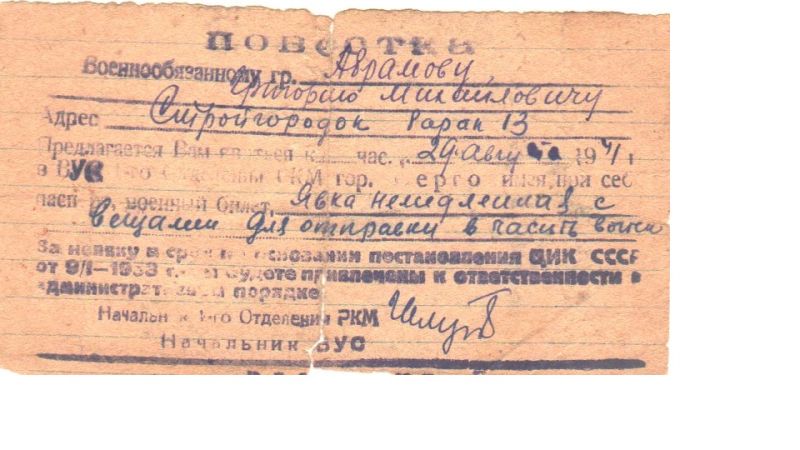 ПОВЕСТКА
Военнообязанному гр. Аврамову
Григорию Михайловичу
Адрес Стройгородок барак 13
Предлагается Вам час. 29 августа 1941 г
в ВУС 1-го Отделения РКМ гор. Серго имея при себ
пасп военный билет. Явка немедленная с
вещами для отправки в часть
За неявку в срок на основании постановления ЦИК СССР
от 9/I-1933 г. будете привлечены к ответственности в
административном порядке
Начальник 1-го Отделения РКМ
Начальник ВУС